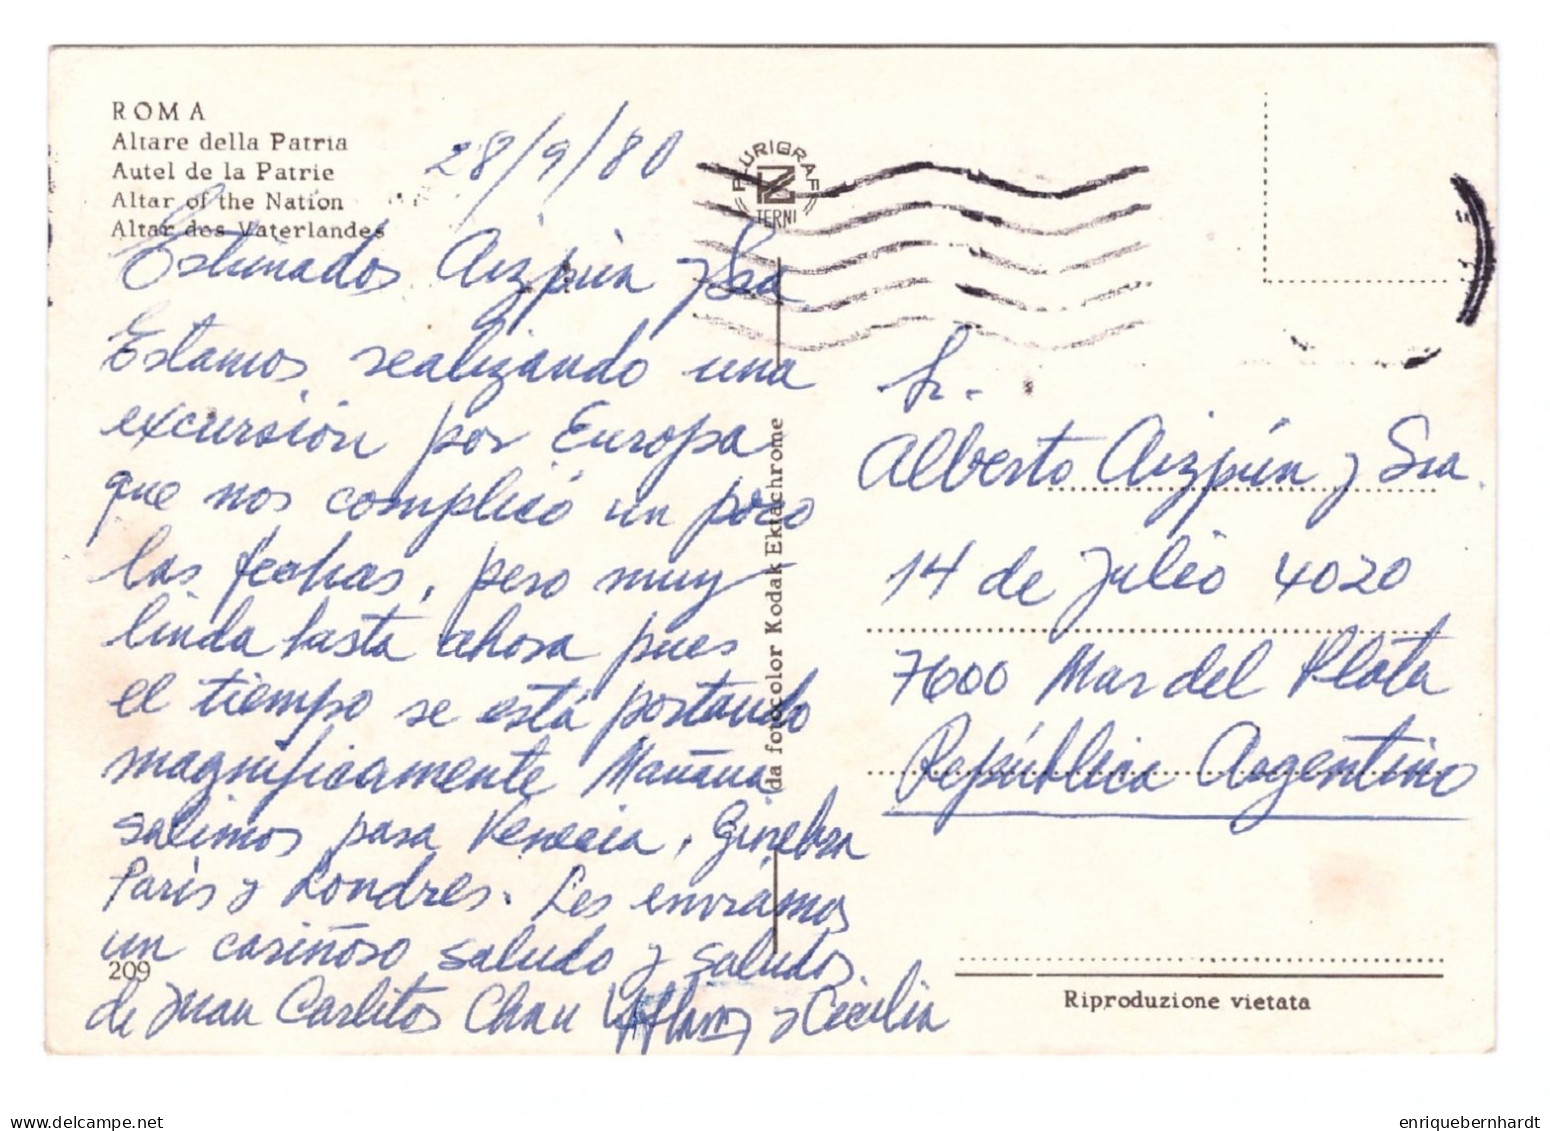 ROMA
Altare della Patria
Autel de la Patrie
Altar of the Nation
Altar des Vaterlandes
28/9/80
PLURIGRAF
TERNI
Estimados Aizpún y Sra
Estamos realizando una
excursión por Europa
que nos complicó un poco
las fechas, pero muy
linda hasta ahora pues
el tiempo se está portando
magnificamente Mañana
salimos para Venecia, Ginebra
París y Londres. Les enviamos
un cariñoso saludo y saludos
de Juan Carlitos Chau y Cecilia
209
da fotocolor Kodak Ektachrome
Sr.
Alberto Aizpún y Sra.
14 de Julio 4020
7600 Mar del Plata
República Argentina
Riproduzione vietata
delcampe.net
enriquebernhardt